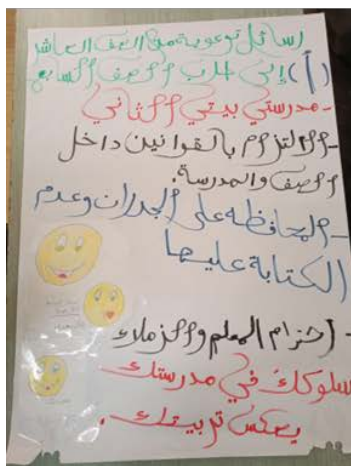 رسائل توعوية من الصف العاشر
(أ) إلى طلاب الصف السابع
- مدرستي بيتي الثاني
- الالتزام بالقوانين داخل
الصف والمدرسة.
- المحافظه على الجدران وعدم
الكتابة عليها
- احترام المعلم والزملاء
سلوكك في مدرستك
يعكس تربيتك.